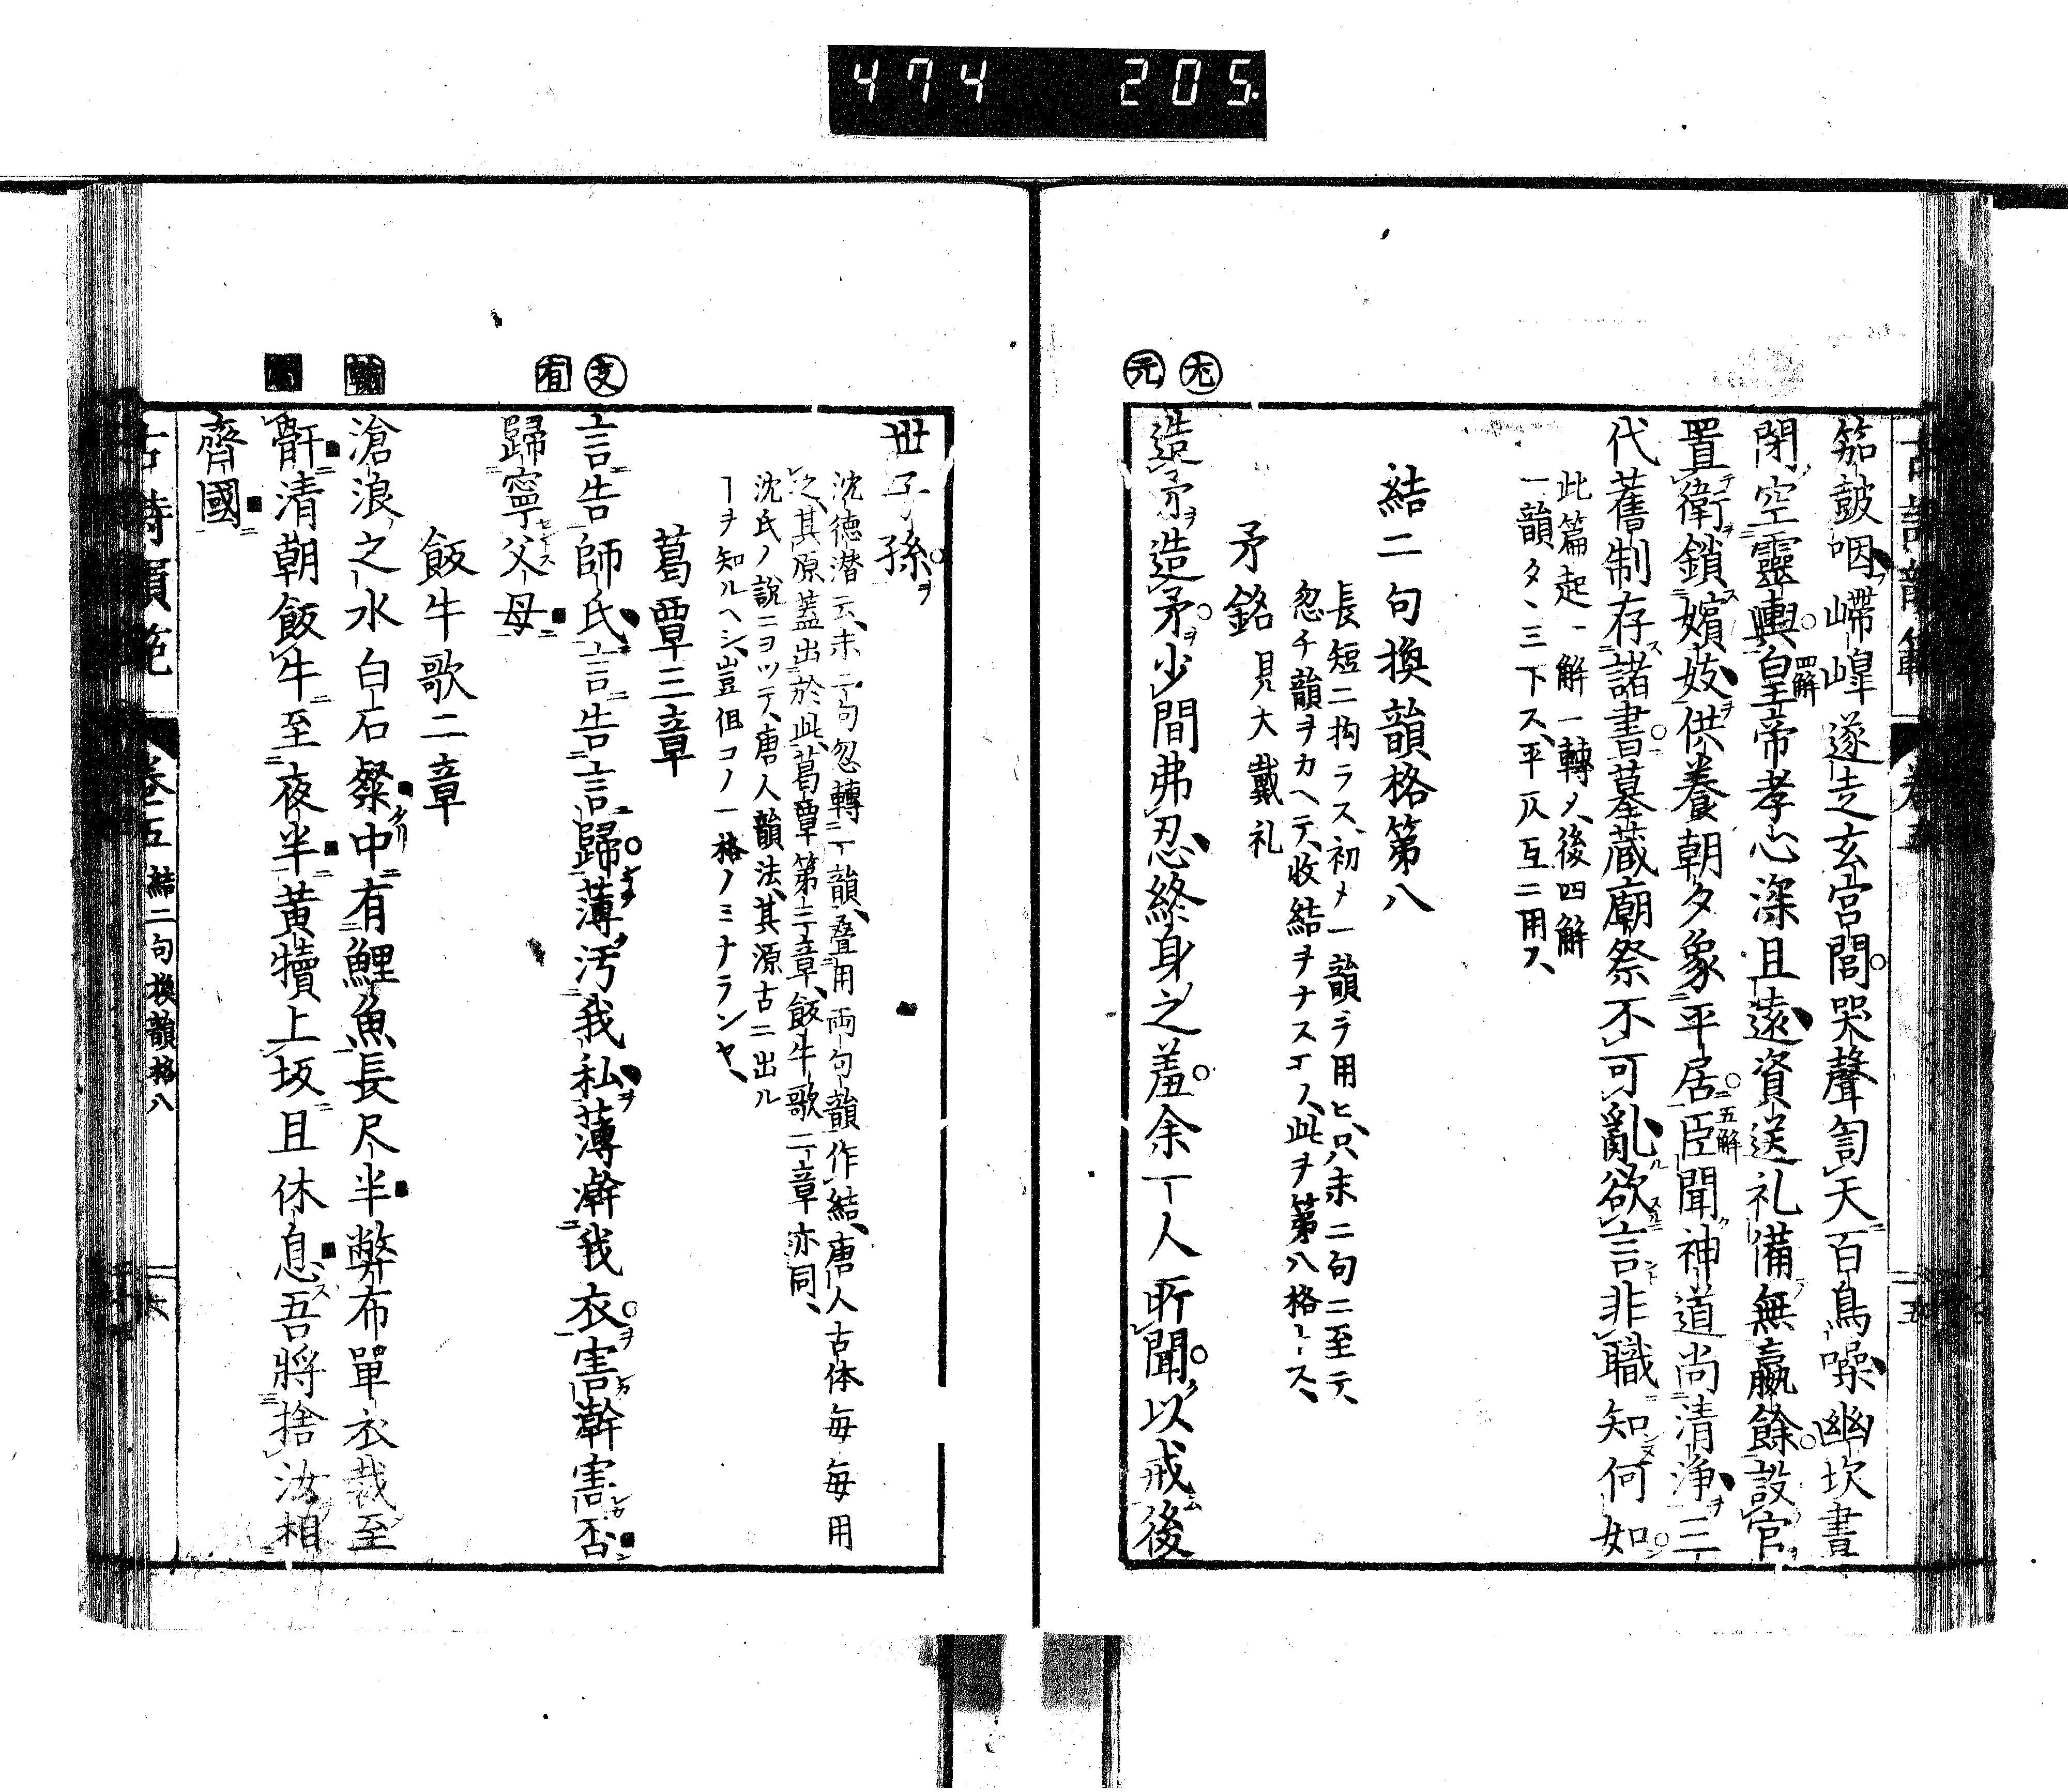 474 205.
古詩韻範 卷五 二五
笳鼓咽嶆嵲遂走玄宮閭哭聲訇天百鳥噪幽坎晝
閉空靈輿四解皇帝孝心深且遠資送礼備無嬴餘設官
置衛鎖嬪妓供養朝夕象平居五解臣聞神道尚清淨三
代舊制存諸書墓蔵廟祭不可亂欲言非職知何如
此篇起一解一轉〆後四解
一韻タヽ三下ス、平仄互ニ用ス、
結二句換韻格第八
長短ニ拘ラス、初メ一韻ヲ用ヒ、只末二句ニ至テ、
忽チ韻ヲカヘテ、收結ヲナスナ丿、此ヲ第八格トス、
矛銘 見大戴礼
尤 元
造矛造矛少間弗忍終身之羞余一人所聞以戒後
世子孫
沈德潜云、末二句忽轉一韻、叠用両句韻作結、唐人古体毎毎用
之、其原蓋出於此、葛覃第三章、飯牛歌二章亦同、
沈氏ノ說ニヨツテ、唐人韻法、其源古ニ出ル
ヿヲ知ルヘシ、豈但コノ一格ノミナランヤ、
葛覃三章
支 有
言告師氏言告言歸薄汚我私薄澣我衣害澣害否
歸寧父母
飯牛歌二章
翰
滄浪之水白石粲中有鯉魚長尺半弊布單衣裁至
骭清朝飯牛至夜半黃犢上坂且休息吾將捨汝相
齊國
古詩韻範 卷五 結二句換韻格八 二六